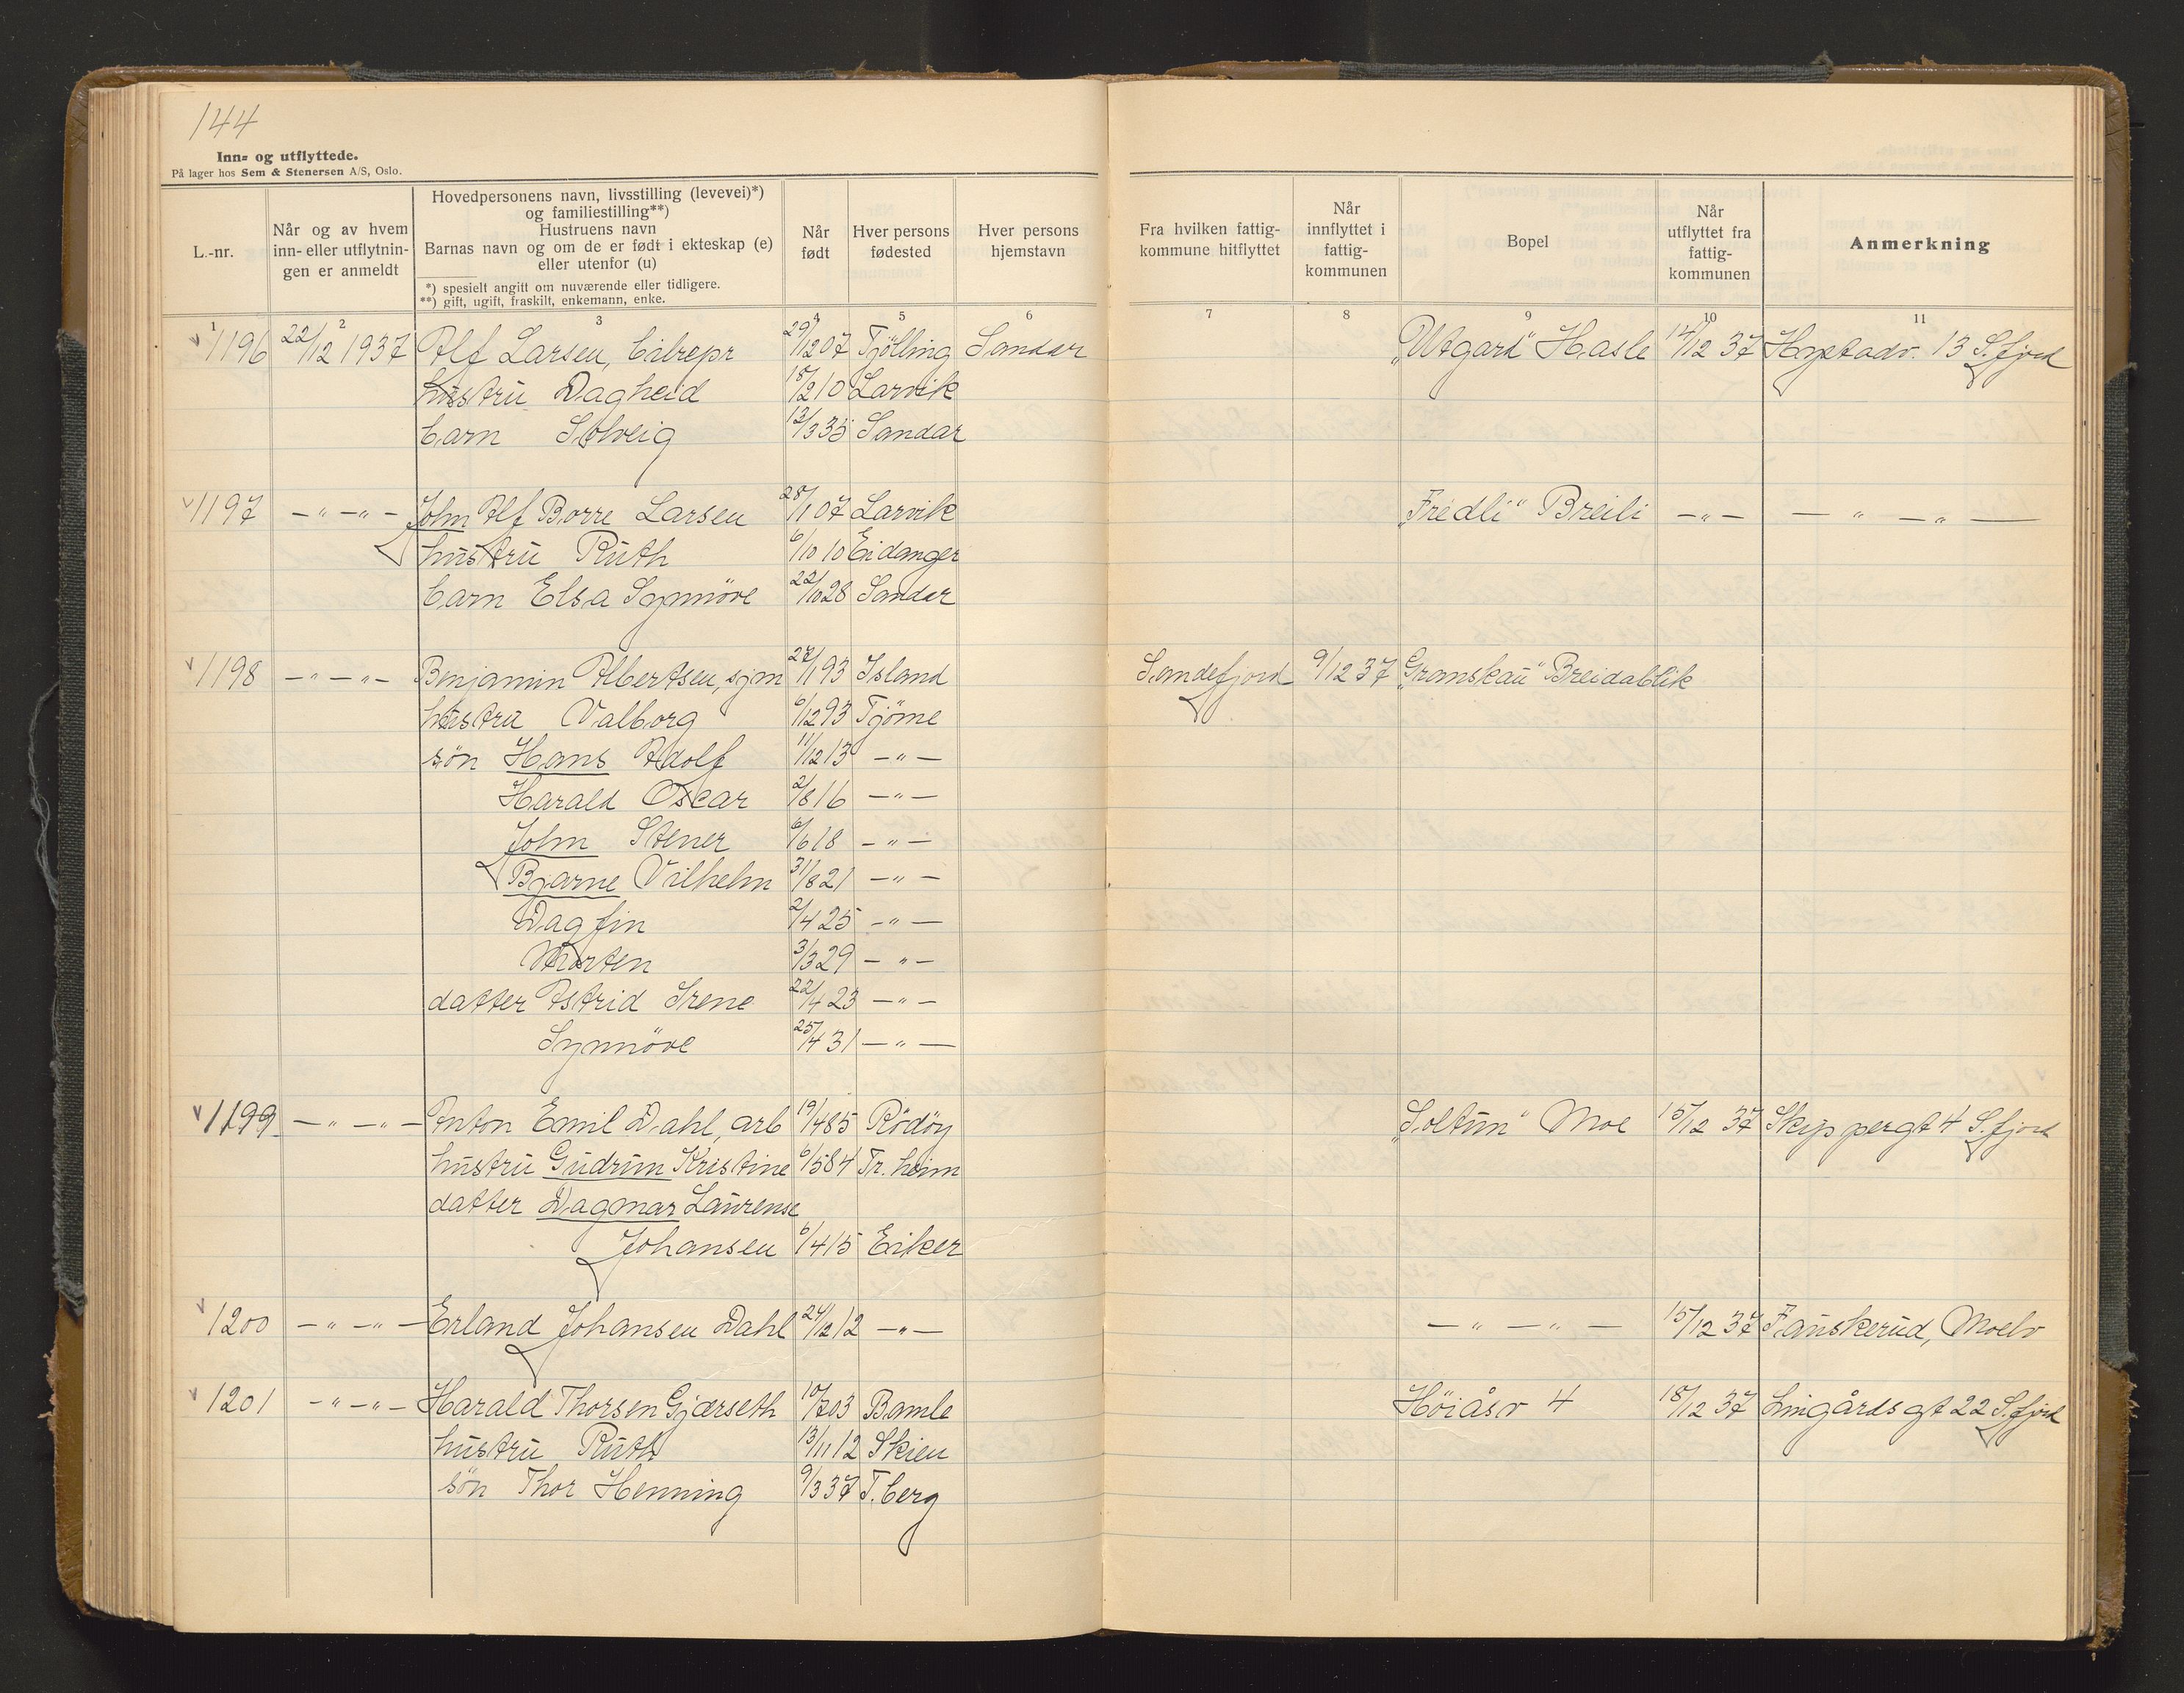 144
Inn= og utflyttede.
På lager hos Sem & Stenersen A/S, Oslo.
L.-nr.
Når og av hvem
inn- eller utflytnin-
gen er anmeldt
Hovedpersonens navn, livsstilling (levevei)*)
og familiestilling**)
Hustruens navn
Barnas navn og om de er født i ekteskap (e)
eller utenfor (u)
*) spesielt angitt om nuværende eller tidligere.
**) gift, ugift, fraskilt, enkemann, enke.
Når
født
Hver persons
fødested
Hver persons
hjemstavn
Fra hvilken fattig-
kommune hitflyttet
Når
innflyttet i
fattig-
kommunen
Bopel
Når
utflyttet fra
fattig-
kommunen
Anmerkning
1 2 3 4 5 6 7 8 9 10 11
1196 22/12 1937 Alf Larsen, bilrepr 29/12 07 Tjölling Sandar "Utgard" Hasle 14/12 37 13 S.fjord
hustru Dagheid 18/2 10 Larvik
barn Solveig 13/3 35 Sandar
1197 -"-"- John Alf Borre Larsen 28/1 07 Larvik "Fredli" Breili -"- -"-"-
hustru Ruth 6/10 10 Eidanger
barn Elsa Synnöve 22/10 28 Sandar
1198 -"-"- Benjamin Albertsen, sjm 27/1 93 Island Sandefjord 9/12 37 "Granskau" Breidablik
hustru Valborg 6/12 93 Tjöme
sön Hans Adolf 11/12 13 -"-
Harald Oscar 2/8 16 -"-
John Stener 6/6 18 -"-
Bjarne Vilhelm 31/8 21 -"-
Dagfin 2/4 25 -"-
Morten 3/3 29 -"-
datter Astrid Irene 22/4 23 -"-
Synnöve 25/4 31 -"-
1199 -"-"- Anton Emil Dahl, arb 19/4 85 Rödöy "Soltun" Moe 15/12 37 Skippergt 4 S.fjord
hustru Gudrun Kristine 6/5 84 Tr.heim
datter Dagmar Laurense
Johansen 6/4 15 Eiker
1200 -"-"- Erland Johansen Dahl 24/12 12 -"- -"-"- 15/12 37 Fauskerud, Moelv
1201 -"-"- Harald Thorsen Gjærseth 10/7 03 Bamle Höiåsv 4 18/12 37 Lingårdsgt 22 S.fjord
hustru Ruth 13/11 12 Skien
sön Thor Henning 9/3 37 T.berg